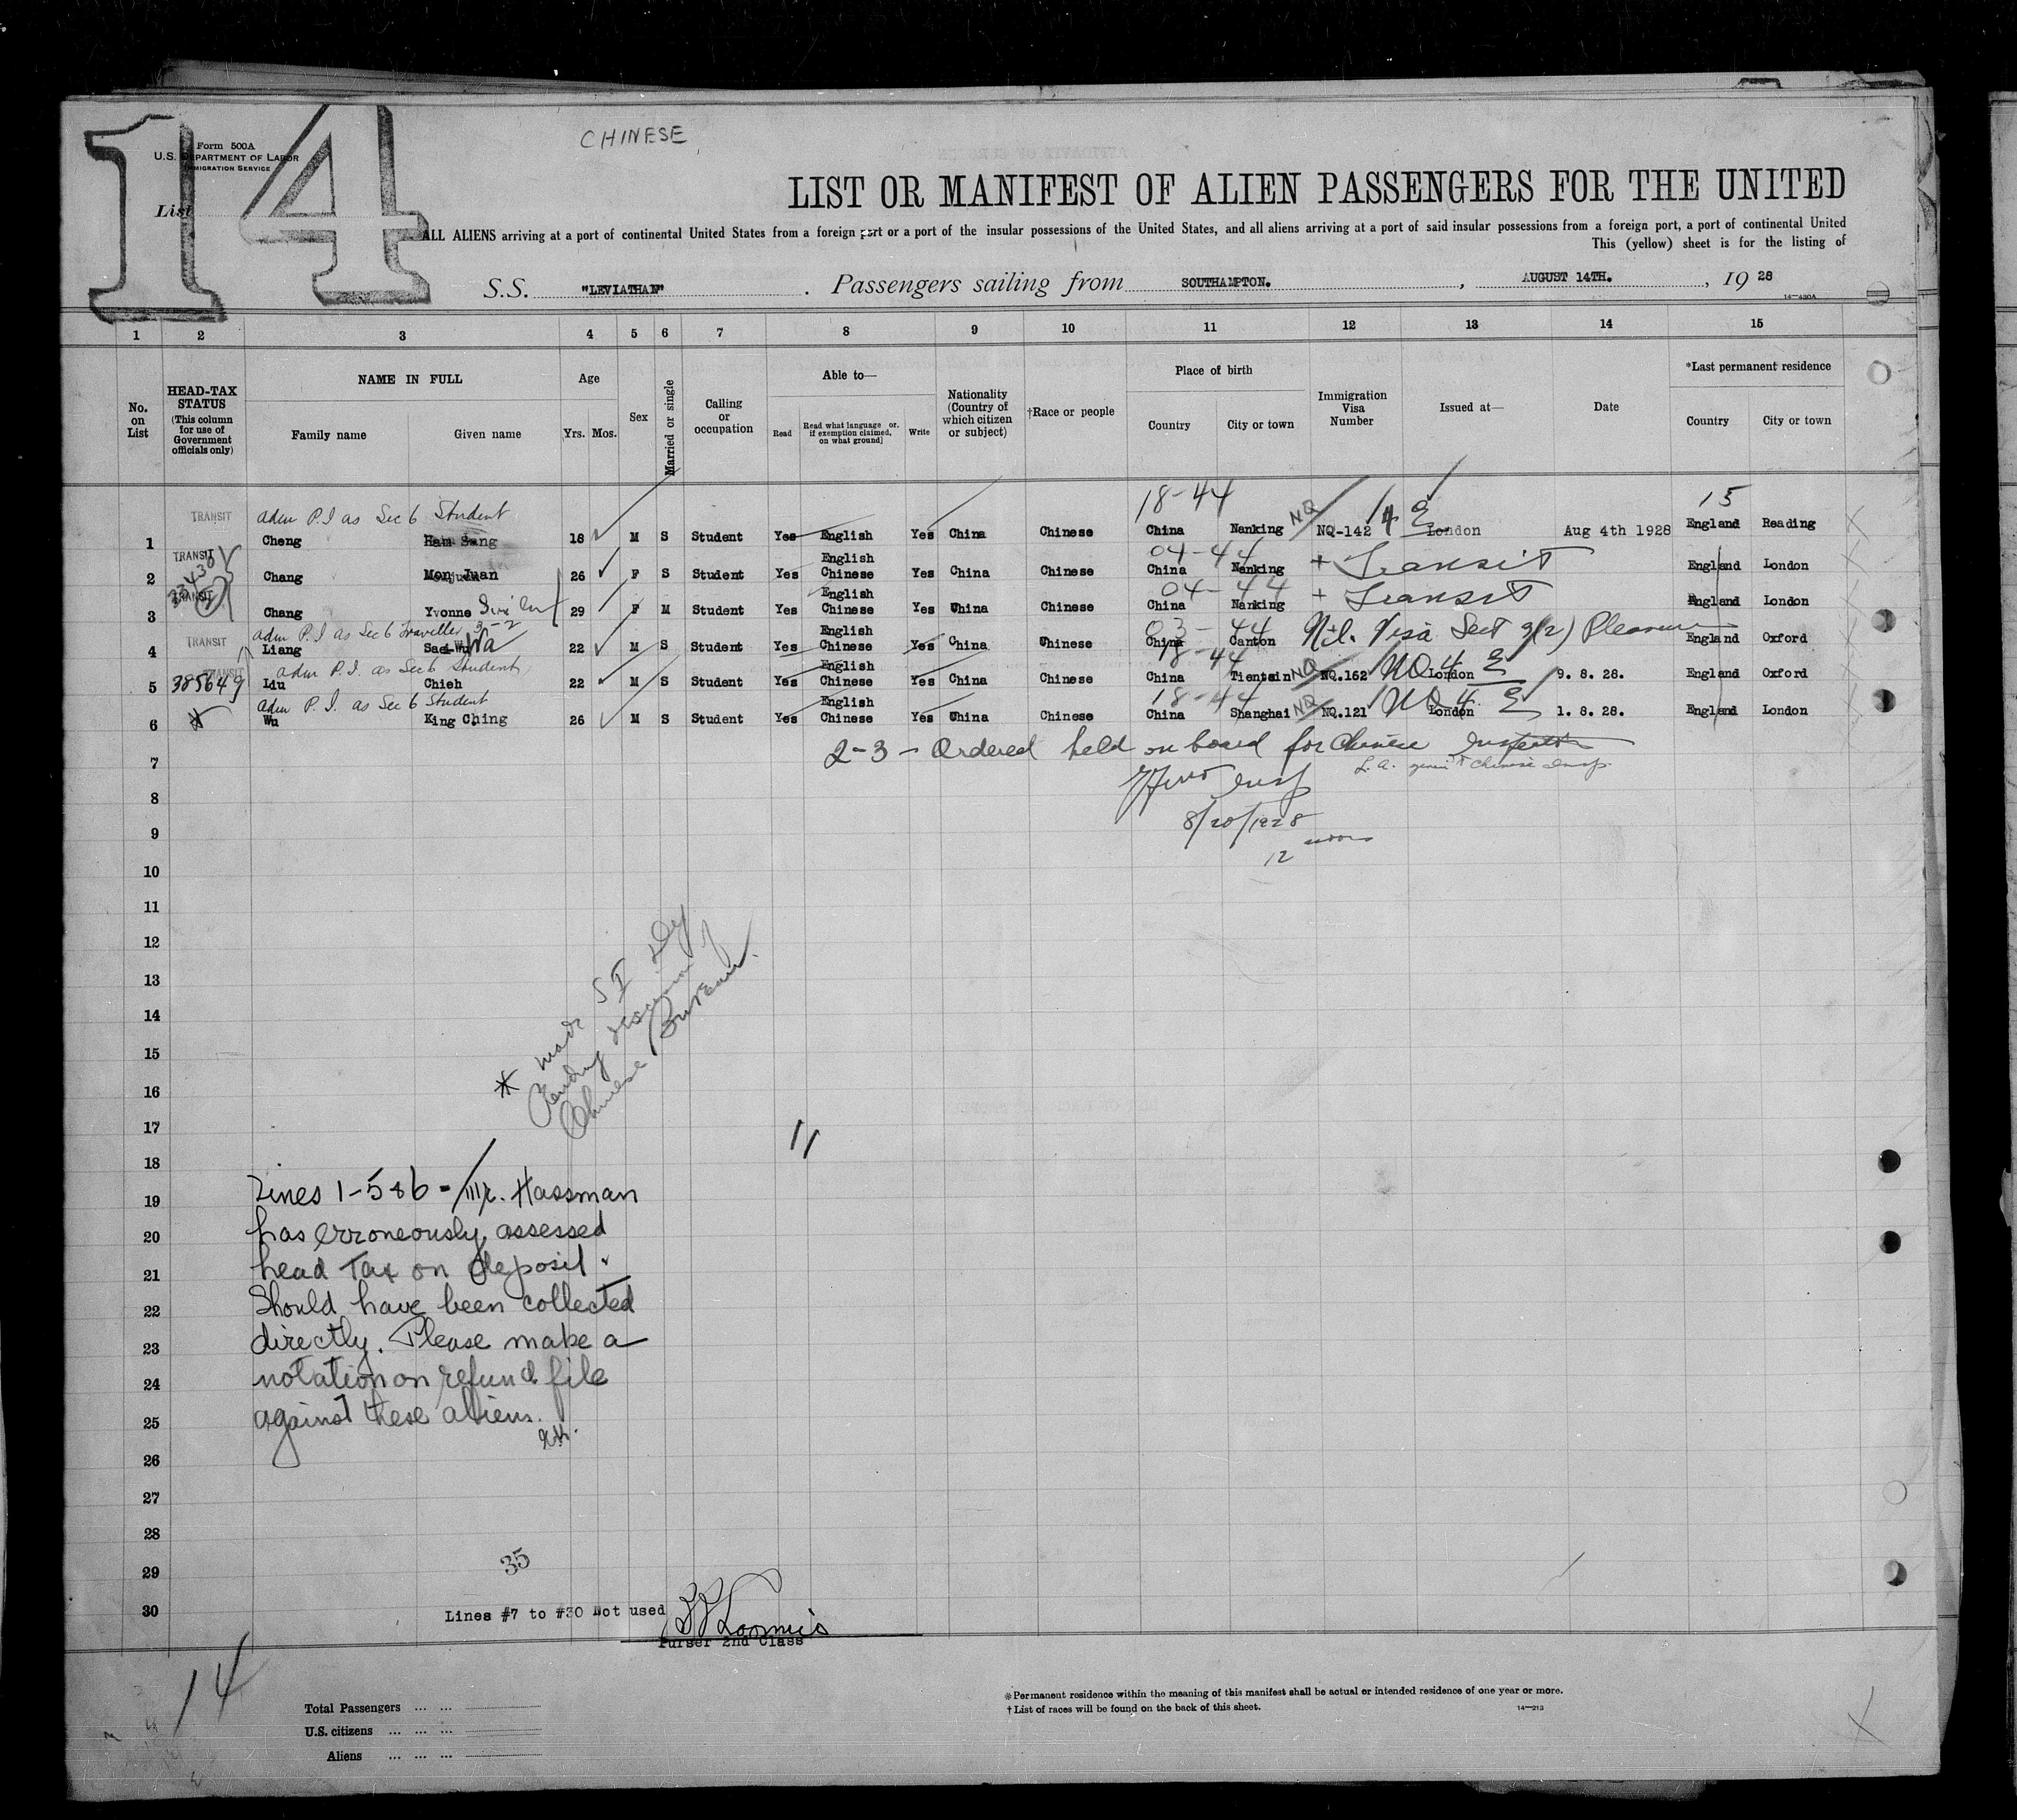 14
CHINESE
Form 500A
U.S. DEPARTMENT OF LABOR
IMMIGRATION SERVICE
List
LIST OR MANIFEST OF ALIEN PASSENGERS FOR THE UNITED
ALL ALIENS arriving at a port of continental United States from a foreign port or a port of the insular possessions of the United States, and all aliens arriving at a port of said insular possessions from a foreign port, a port of continental United
This (yellow) sheet is for the listing of
S.S. "LEVIATHAN". Passengers sailing from SOUTHAMPTON. , AUGUST 14TH. , 19 28
14—430A
1 2 3 4 5 6 7 8 9 10 11 12 13 14 15
No. on List
HEAD-TAX STATUS (This column for use of Government officials only)
NAME IN FULL
Family name Given name
Age
Yrs. Mos.
Sex
Married or single
Calling or occupation
Able to—
Read Read what language or, if exemption claimed, on what ground] Write
Nationality (Country of which citizen or subject)
†Race or people
Place of birth
Country City or town
Immigration Visa Number
Issued at—
Date
*Last permanent residence
Country City or town
TRANSIT adm P.I as Sec 6 Student 18-44 NQ 4 15
1 Cheng 18 M S Student Yes English Yes China Chinese China Nanking NQ-142 London Aug 4th 1928 England Reading
TRANSIT English 04-44 + Transit
2 Chang Mon Juan 26 F S Student Yes Chinese Yes China Chinese China Nanking England London
TRANSIT English 04-44 + Transit
3 Chang Yvonne 29 F M Student Yes Chinese Yes China Chinese China Nanking England London
TRANSIT adm P.I as Sec 6 Traveller 3-2 English 03-44 Nil. Visa Sect 3(2) Pleasure
4 Liang Wa 22 M S Student Yes Chinese Yes China Chinese China Canton England Oxford
TRANSIT adm P.I. as Sec 6 Student English 18-44 NQ NQ 4
5 385649 Liu Chieh 22 M S Student Yes Chinese Yes China Chinese China Tientsin NQ.162 London 9. 8. 28. England Oxford
adm P.I. as Sec 6 Student English 18-44 NQ NQ 4
6 * Wu King Ching 26 M S Student Yes Chinese Yes China Chinese China Shanghai NQ.121 London 1. 8. 28. England London
2-3 - Ordered held on board for Chinese
7
Insp
8
8/20/1928
9
12 noon
10
11
12
13
14
15
16
17
18
19
20
21
22
23
24
25
26
27
28
29
30
* made S I
Pending
Chinese Bureau.
Lines 1-5&6 - Mr. Hassman
has erroneously assessed
head Tax on deposit.
Should have been collected
directly. Please make a
notation on refund file
against these aliens.
35
Lines #7 to #30 Not used
Purser 2nd Class
14
Total Passengers ... ...
U.S. citizens ... ... ...
Aliens ... ... ...
*Permanent residence within the meaning of this manifest shall be actual or intended residence of one year or more.
†List of races will be found on the back of this sheet.
14—213